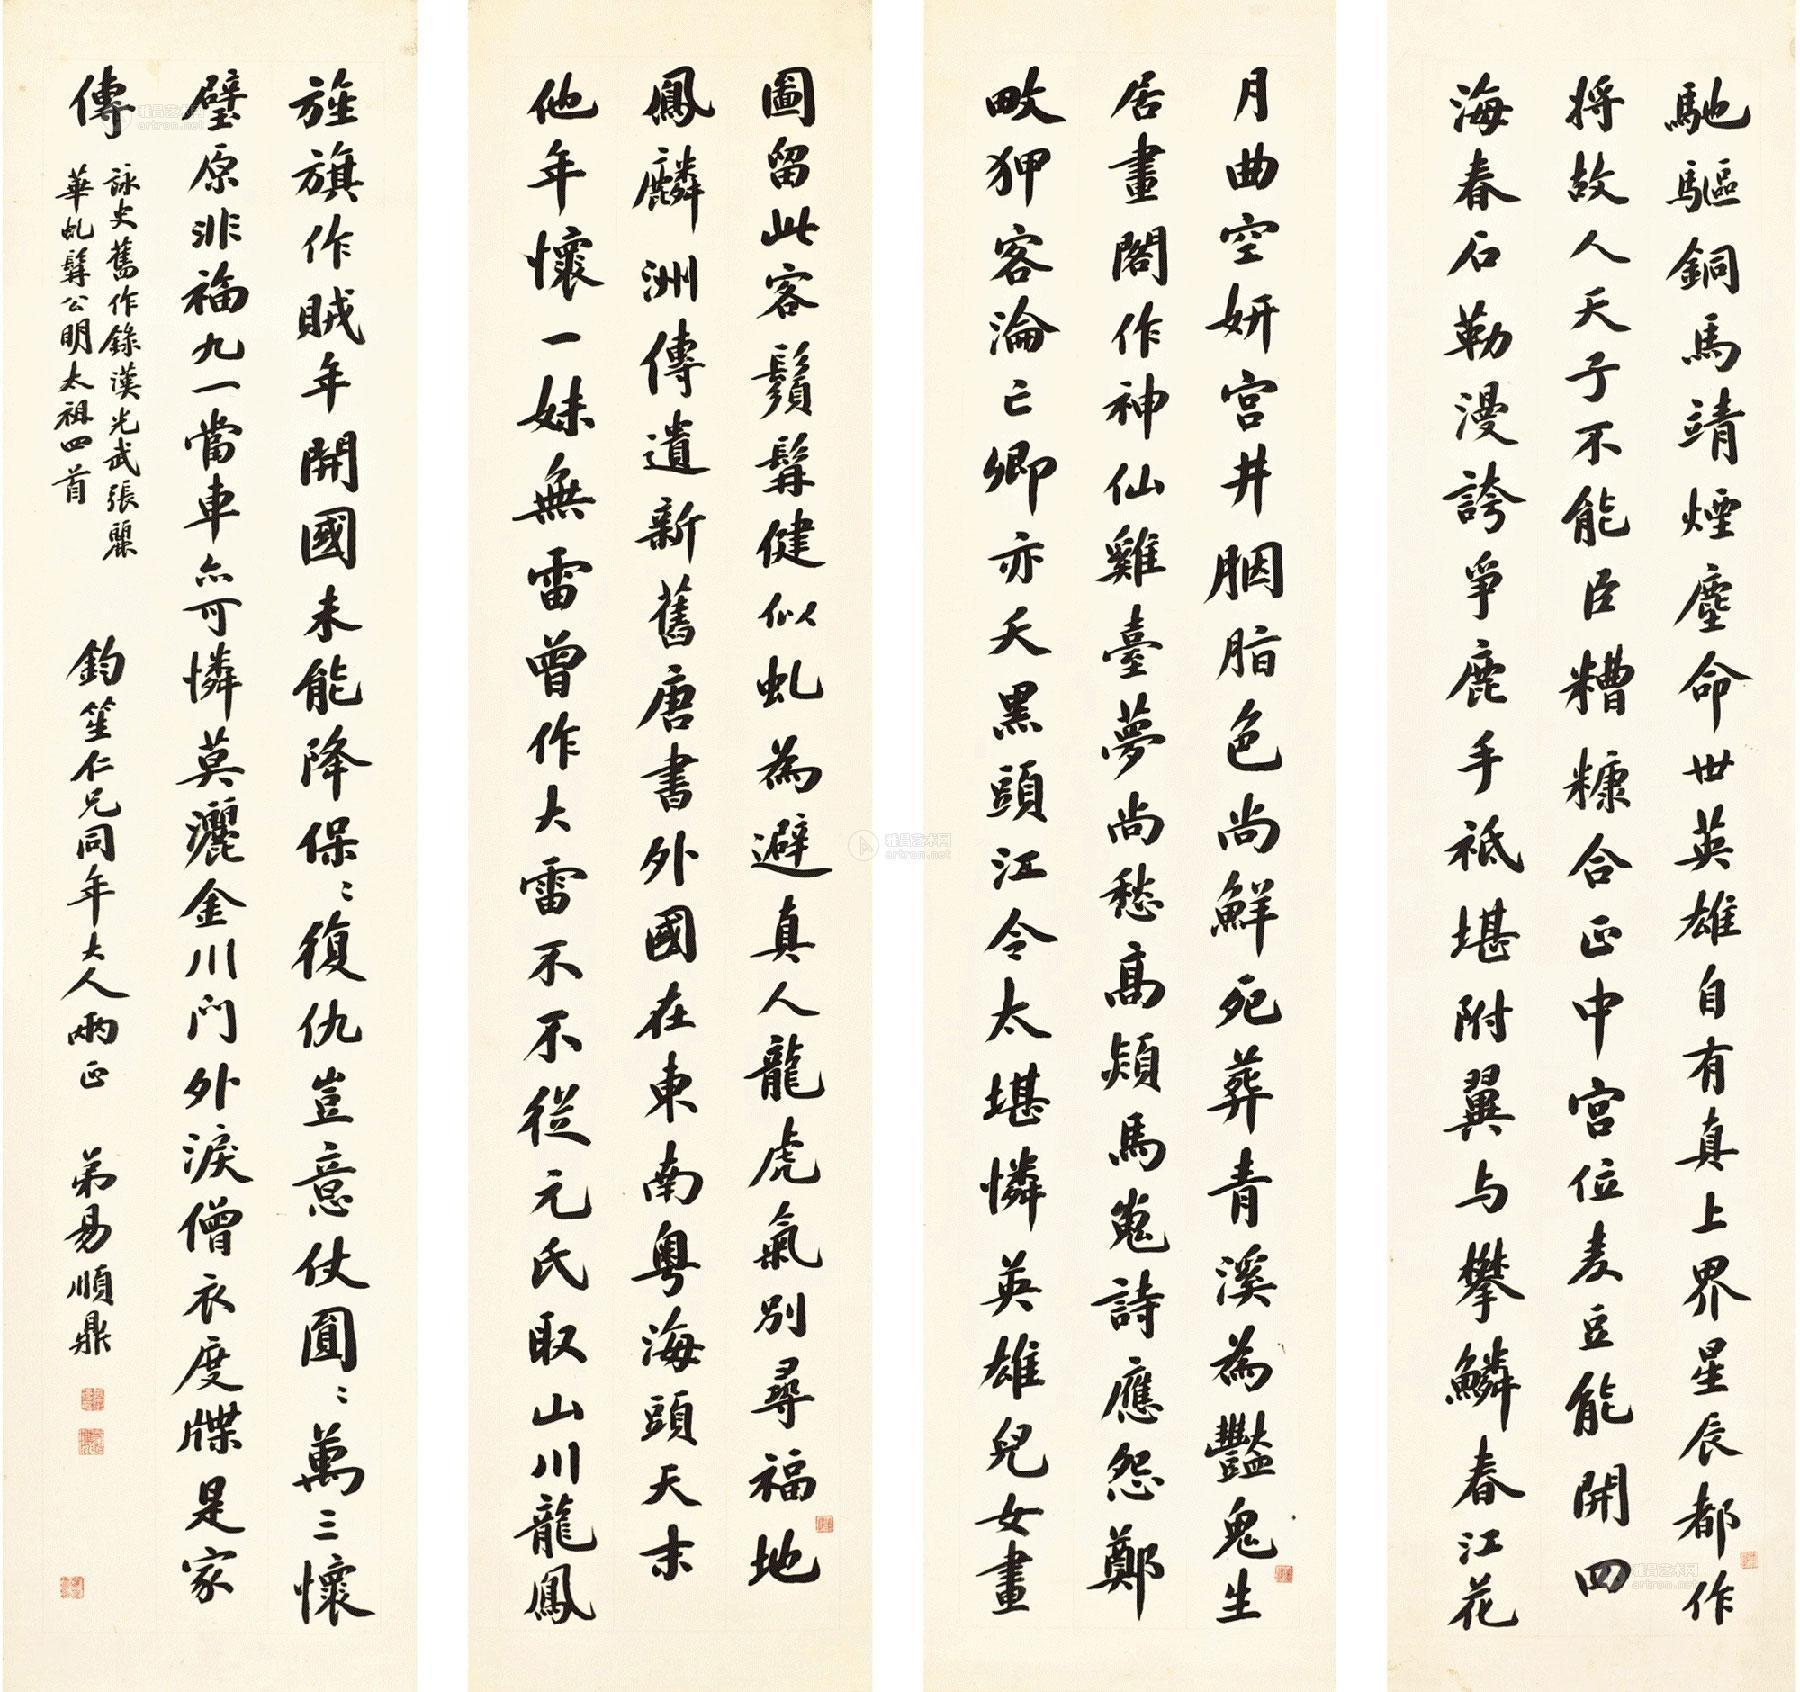 馳驅銅馬靖煙塵命世英雄自有真上界星辰都作
將故人天子不能臣糟糠合正中宮位麦豆能開四
海春石勒漫誇爭鹿手祗堪附翼与攀鱗春江花
月曲空妍宮井胭脂色尚鮮死葬青溪為豔鬼生
居畫閣作神仙雞臺夢尚愁高熲馬嵬詩應怨鄭
畋狎客淪亡卿亦夭黑頭江令太堪憐英雄兒女畫
圖留此客鬚髯健似虬為避真人龍虎氣別尋福地
鳳麟洲傳遺新舊唐書外國在東南粵海頭天末
他年懷一妹無雷曾作大雷不不從元氏取山川龍鳳
旌旗作賊年開國未能降保〻復仇豈意仗圓〻萬三懷
璧原非福九一當車亦可憐莫灑金川門外淚僧衣度牒是家
傳
詠史舊作錄漢光武張麗
華虬髯公明太祖四首
鈞笙仁兄同年大人兩正
弟易順鼎
雅昌艺术网
artron.net
雅昌艺术网
artron.net
雅昌艺术网
artron.net